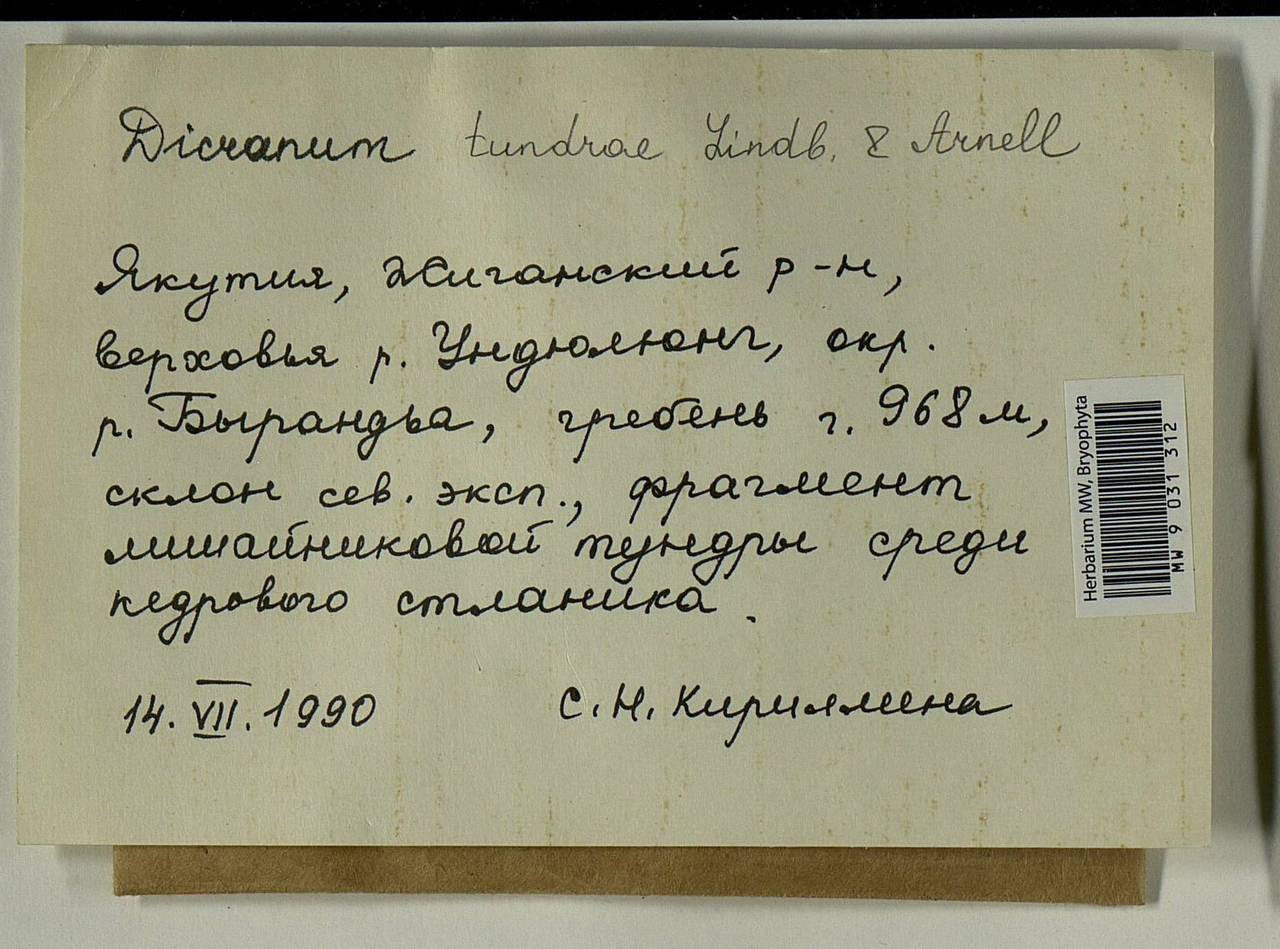 Dicranum tundrae Lindb. & Arnell
Якутия, Жиганский р-н,
верховья р. Ундюлюнг, окр.
р. Бырандьа, гребень г. 968 м,
склон сев. эксп., фрагмент
лишайниковой тундры среди
кедрового стланика.
14. VII. 1990 С. Н. Кириллина
Herbarium MW, Bryophyta
MW 9 031 312